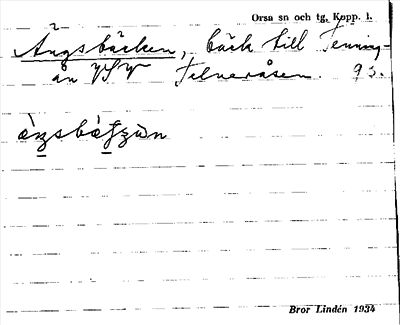 Orsa sn och tg. Kopp. l.
Ängsbäcken, bäck till Tenning-
ån VSV Telneråsen. 93.
Bror Lindén 1934